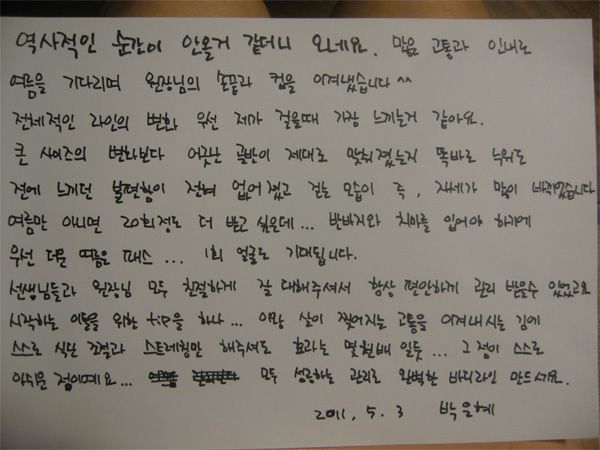 역사적인 순간이 안올거 같더니 오네요. 많은 고통과 인내로
여름을 기다리며 원장님의 손끝과 컵을 이겨냈습니다^^
전체적인 라인의 변화 우선 제가 걸을때 가장 느끼는거 같아요.
큰 사이즈의 변화보다 어긋난 골반이 제대로 맞춰졌는지 똑바로 누워도
전에 느끼던 불편함이 전혀 없어졌고 걷는 모습이 즉, 자세가 많이 바뀌었습니다
여름만 아니면 20회정도 더 받고 싶은데... 반바지와 치마를 입어야 하기에
우선 더운 여름은 패스... 1회 얼굴도 기대됩니다.
선생님들과 원장님 모두 친절하게 잘 대해주셔서 항상 편안하게 관리 받을수 있었고요
시작하는 이들을 위한 tip을 하나... 이왕 살이 찢어지는 고통을 이겨내시는 김에
스스로 식단 조절과 스트레칭만 해주셔도 효과는 몇천배 일듯... 그 점이 스스로
아쉬운 점이예요... 모두 성공하는 관리로 완벽한 바디라인 만드세요.
2011. 5. 3 박은혜